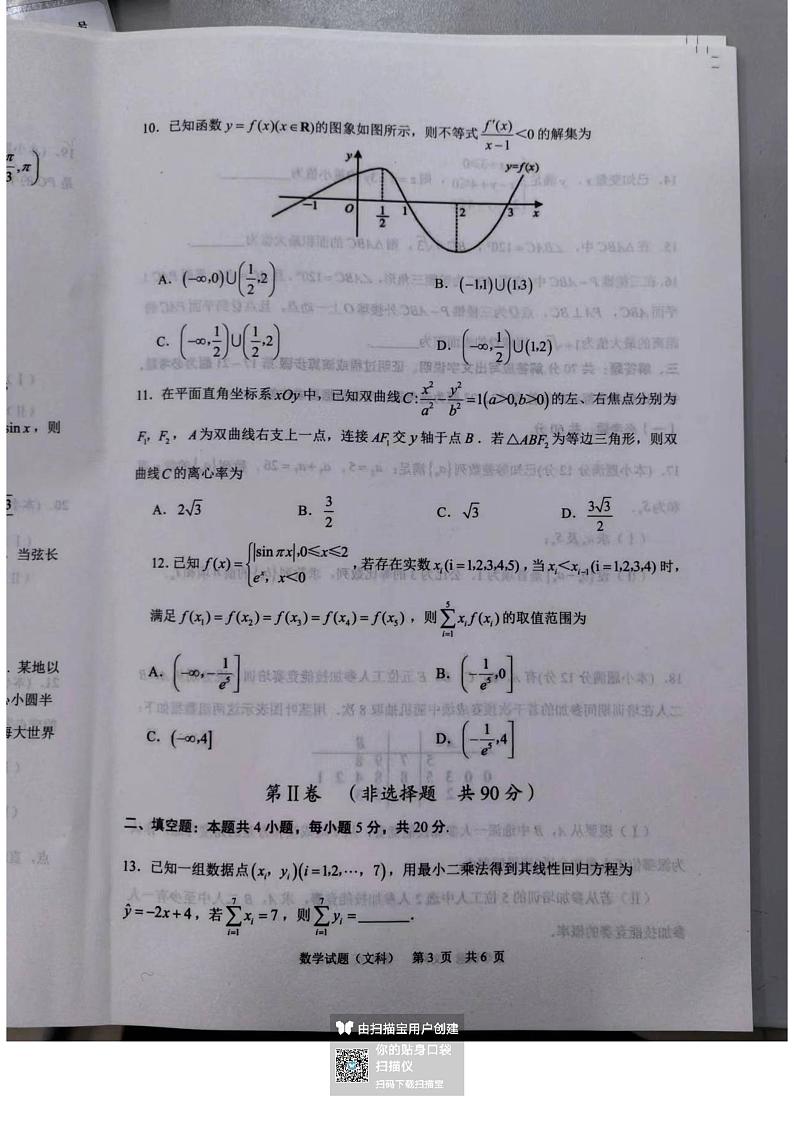 号
10. 已知函数 y = f(x)(x∈R)的图象如图所示，则不等式 f′(x)/(x−1) <0 的解集为
y
y=f(x)
−1 O 1/2 1 2 3 x
A. (−∞,0)∪(1/2,2)
B. (−1,1)∪(1,3)
C. (−∞,1/2)∪(1/2,2)
D. (−∞,1/2)∪(1,2)
11. 在平面直角坐标系 xOy 中，已知双曲线 C: x²/a² − y²/b² =1(a>0,b>0) 的左、右焦点分别为
F₁, F₂，A 为双曲线右支上一点，连接 AF₁ 交 y 轴于点 B．若 △ABF₂ 为等边三角形，则双
曲线 C 的离心率为
A. 2√3
B. 3/2
C. √3
D. 3√3/2
12. 已知 f(x) = { |sin πx|,0≤x≤2
eˣ, x<0
，若存在实数 xᵢ(i =1,2,3,4,5)，当 xᵢ<xᵢ₊₁(i =1,2,3,4) 时，
满足 f(x₁) = f(x₂) = f(x₃) = f(x₄) = f(x₅)，则 ∑_{i=1}^{5} xᵢf(xᵢ) 的取值范围为
A. (−∞,−1/e⁵]
B. (−1/e⁵,0]
C. (−∞,4]
D. (−1/e⁵,4]
第Ⅱ卷 （非选择题 共90分）
二、填空题：本题共 4 小题，每小题 5 分，共 20 分.
13. 已知一组数据点 (xᵢ, yᵢ)(i =1,2,⋯, 7)，用最小二乘法得到其线性回归方程为
ŷ = −2x + 4，若 ∑_{i=1}^{7} xᵢ = 7，则 ∑_{i=1}^{7} yᵢ = ______.
数学试题（文科） 第 3 页 共 6 页
sin x，则
当弦长
某地以
小圆半
大世界
由扫描宝用户创建
你的贴身口袋
扫描仪
扫码下载扫描宝